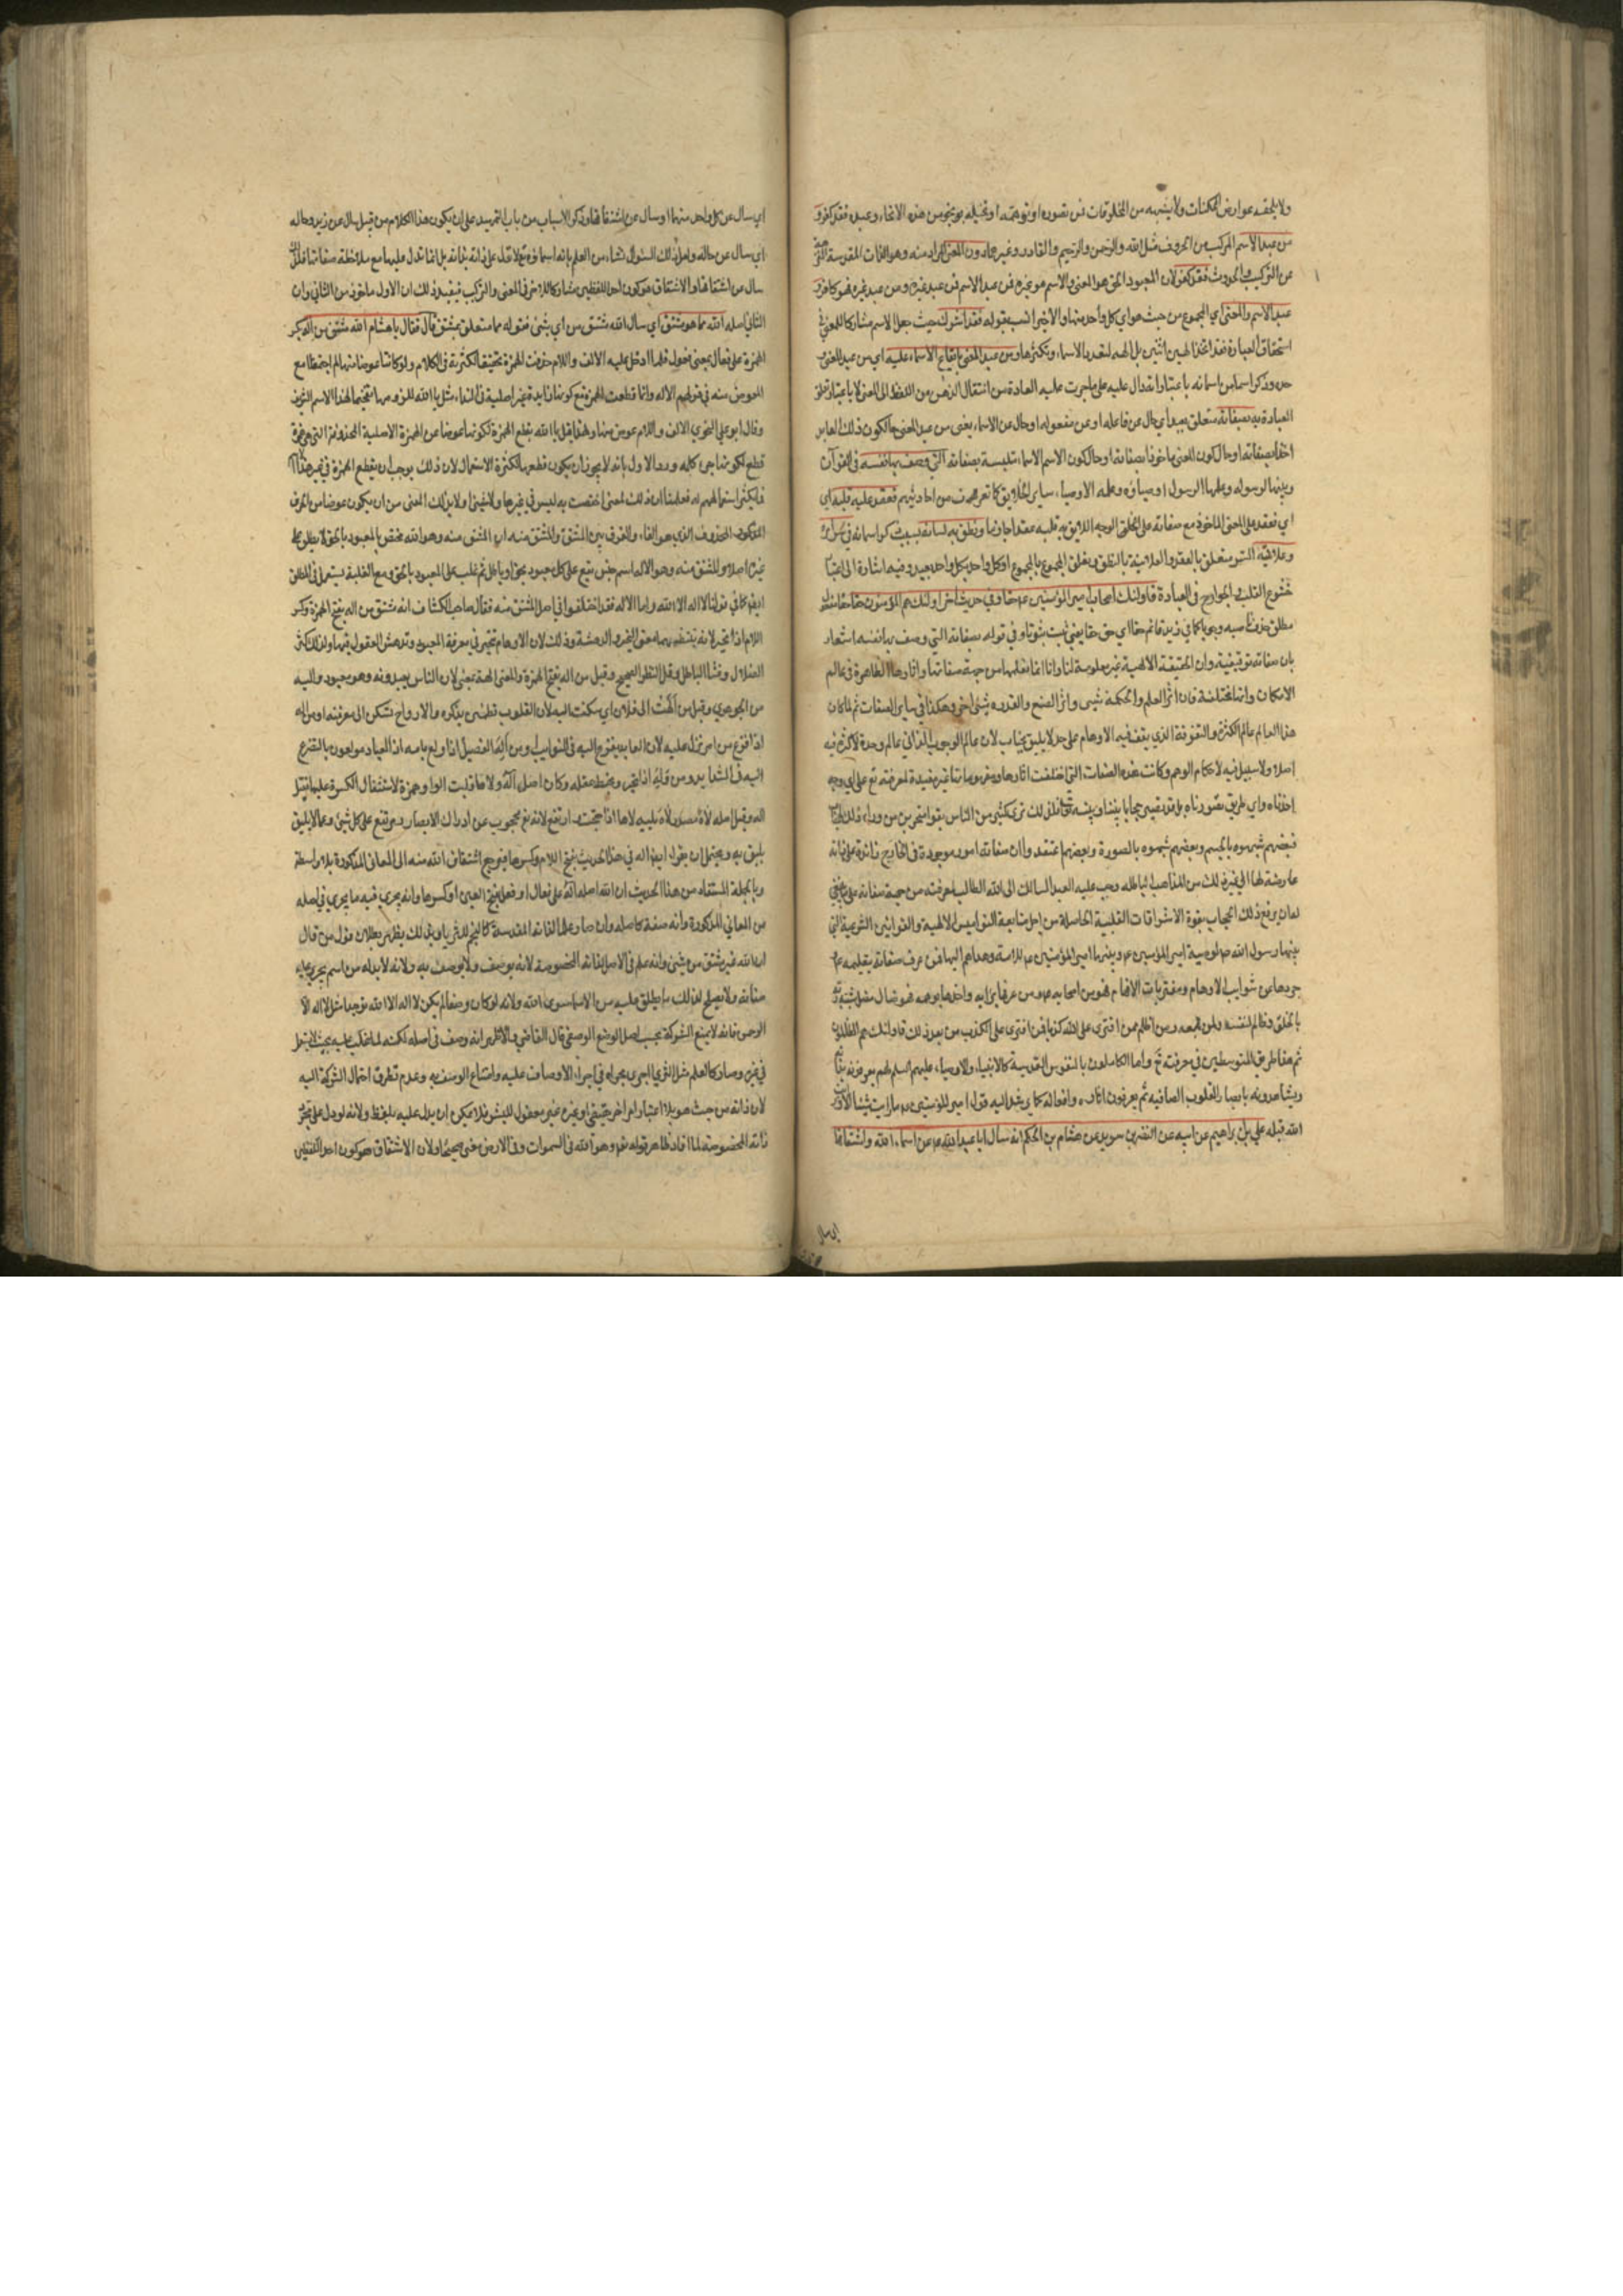 ولا يلحقه عوارض الممكنات ولا يشبهه من المخلوقات فمن تصوره او توهمه او تخيله بوجه من هذه الانحاء وعبده فقد كفر و
من عبد الاسم المركب من الحروف مثل الله والرحمن والرحيم والقادر وغيرها دون المعنى المراد منه وهو الذات المقدسة
عن التركيب والحدوث فقد كفر لان المعبود الحق هو المعنى والاسم هو غيره فمن عبد الاسم فمن عبد غيره ومن عبد غيره فهو كافر و
عبد الاسم والمعنى اي المجموع من حيث هو اي كل واحد منهما والاخير انسب بقوله فقد اشرك حيث جعل الاسم مشاركا للمعنى في
استحقاق العبادة فقد اتخذ الهين اثنين بل الهة لتعدد الاسماء وتكثرها ومن عبد المعنى بايقاع الاسماء عليه اي من عبد المعنى
وذكر اسما من اسمائه باعتبار انه دال عليه على ما جرت عليه العادة من انتقال الذهن من اللفظ الى المعنى لا باعتبار
العبادة به بصفاته متعلق بعبد اي حال عن فاعله او عن مفعوله او حال عن الاسماء يعني من عبد المعنى حالكون ذلك العابد
بصفاته او حالكون المعنى ماخوذا بصفاته او حالكون الاسماء متلبسة بصفاته التي وصف بها نفسه في القران
وبينها لرسوله وعلمها الرسول اوصياؤه وعلمه الاوصياء ساير الخلايق كما تعرف من احاديثهم فعقد عليه قلبه اي
اي فعقد على المعنى الماخوذ مع صفاته على الوجه اللايق به قلبه عقدا جازما ونطق به لسانه بسبب ذكر اسمائه في سرائره
وعلانيته السر متعلق بالعقد والعلانية بالنطق وتعلق المجموع بالمجموع او كل واحد بكل واحد بعيد وفيه اشارة الى اعتبار
خشوع القلب والجوارح في العبادة فاولئك اصحاب امير المؤمنين ع حقا وفي حديث اخر اولئك هم المؤمنون حقا حقا مفعول
مطلق حذف ناصبه وجوبا كما في زيد قائم حقا اي حق حقا يعني ثبت ثبوتا وفي قوله بصفاته التي وصف بها نفسه اشعار
بان صفاته توقيفية وان الحقيقة الالهية غير معلومة لنا وانا انما نعلمها من جهة صفاتها واثارها الظاهرة في عالم
الامكان وانها مختلفة فان اثر العلم والحكمة شيء واثر الصنع والقدرة شيء اخر وهكذا في ساير الصفات ثم لما كان
هذا العالم عالم الكثرة والتفرقة الذي يقف فيه الاوهام على حد لا يليق بجناب لان عالم الوجوب الذاتي عالم وحدة لا كثرة فيه
اصلا ولا سبيل فيه لاحكام الوهم وكانت هذه الصفات التي اختلفت اثارها ومفهوماتها غير مفيدة لمعرفته تع على اي وجه
اخذناه واي طريق تصورناه بل قد تصير حجابا بيننا وبينه تعالى فلذلك ترى كثيرا من الناس بقوا متحيرين من وراء ذلك الحجاب
فبعضهم شبهوه بالجسم وبعضهم شبهوه بالصورة وبعضهم اعتقدوا ان صفاته امور موجودة في الخارج زائدة على ذاته
عارضة لها الى غير ذلك من المذاهب الباطلة وجب عليه العبد السالك الى الله الطالب لمعرفته من جهة صفاته على
ان يرفع ذلك الحجاب بقوة الاشراقات القلبية الحاصلة من اجل متابعة النواميس الالهية والقوانين الشرعية التي
بينها رسول الله ص لوصيه امير المؤمنين ع وبينها امير المؤمنين ع للامة وهداهم اليها فمن عرف صفاته بتعليمه ع
جردها عن شوايب الاوهام ومفتريات الافهام فهو من اصحابه ع ومن عرفها برايه واخذها بوهمه فهو ضال مضل مشبه
بالخلق وظالم لنفسه ولمن تبعه ومن اظلم ممن افترى على الله كذبا فمن افترى على الله الكذب من بعد ذلك فاولئك هم الظالمون
ثم هذا طريق المتوسطين في معرفته تع واما الكاملون بالنفوس القدسية كالانبياء والاوصياء عليهم السلم فهم يعرفونه
ويشاهدونه بابصار القلوب الصافية ثم يعرفون اثاره وافعاله كما يرشد اليه قول امير المؤمنين ع ما رايت شيئا الا ورايت
الله قبله علي بن ابراهيم عن ابيه عن النضر بن سويد عن هشام بن الحكم انه سال ابا عبد الله ع عن اسماء الله واشتقاقها
اي سال
اي سال عن كل واحد منهما او سال عن اشتقاقها وذكر الاسماء من باب التمهيد على ان يكون هذا الكلام من قبيل سال عن زيد وحاله
اي سال عن حاله ولعل ذلك السؤال نشاء من العلم بانه اسماؤه تع لا تدل على ذاته بذاته بل انما تدل عليها مع ملاحظة صفاتها فلذلك
سال عن اشتقاقها والاشتقاق هو كون احد اللفظين مشاركا للاخر في المعنى والتركيب فيفيد ذلك ان الاول ماخوذ من الثاني وان
الثاني اصله الله مما هو مشتق اي سال الله مشتق من اي شيء فقوله مما متعلق بمشتق قال فقال يا هشام الله مشتق من اله بكسر
الهمزة على فعال بمعنى مفعول فلما ادخل عليه الالف واللام حذفت الهمزة تخفيفا لكثرته في الكلام ولو كانتا عوضا منها لم اجتمعتا مع
المعوض منه في قولهم الاله وانما قطعت الهمزة مع كونها زايدة غير اصلية في النداء مثل يا الله للزومها تفخيما لهذا الاسم الشريف
وقال ابو علي النحوي الالف واللام عوض منها ولهذا قيل يا الله بقطع الهمزة لكونها عوضا عن الهمزة الاصلية المحذوفة التي هي همزة
قطع لكونها جزء كلمة ورد الاول بانه لا يجوز ان يكون قطعها لكثرة الاستعمال لان ذلك يوجب ان يقطع الهمزة في غير هذا
مما يكثر استعمالهم له فعلمنا ان ذلك لمعنى اختصت به ليس في غيرها ولا شيء اولى بذلك المعنى من ان يكون عوضا من الحرف
المحذوف الذي هو الفاء والفرق بين المشتق والمشتق منه ان المشتق منه وهو الله مختص بالمعبود بالحق لا يطلق على
غيره اصلا والمشتق منه وهو الاله اسم جنس يقع على كل معبود بحق او باطل ثم غلب على المعبود بالحق ومع الغلبة يستعمل في المطلق
ايضا كما في قولنا لا اله الا الله واما الاله فقد اختلفوا في اصل المشتق منه فقال صاحب الكشاف انه مشتق من اله بفتح الهمزة وكسر
اللام اذا تحير لانه ينتظمهما معنى التحير والدهشة وذلك لان الاوهام تتحير في معرفة المعبود وتدهش العقول فيها ولذلك كثر
الضلال وفشا الباطل وقل النظر الصحيح وقيل من اله بفتح الهمزة والمعنى الهة بمعنى لان الناس يعبدونه وهو معبود واليه
من الجوهري وقيل من الهت الى فلان اي سكنت اليه لان القلوب تطمئن بذكره والارواح تسكن الى معرفته او من اله
اذا فزع من امر نزل عليه لان العابد يفزع اليه في النوايب او من اله الفصيل اذا ولع بامه اذ العباد مولعون بالتضرع
اليه في الشدايد او من وله اذا تحير وتخبط عقله وكان اصل اله ولاها قلبت الواو همزة لاستثقال الكسرة عليها فقيل
اله وقيل اصله لاه مصدر لاه يليه لاها اذا احتجب وارتفع لانه تع محجوب عن ادراك الابصار ومرتفع على كل شيء وعما لا يليق
يليق به ويحتمل ان يقرا اله في هذا الحديث بفتح اللام وكسرها فيرجع اشتقاق الله منه الى المعاني المذكورة بلا واسطة
وبالجملة المستفاد من هذا الحديث ان الله اصله اله على فعال او فعل بفتح العين او كسرها وانه يجري فيه ما يجري في اصله
من المعاني المذكورة وانه صفة كاصله وان صار علما لذاته المقدسة كالنجم للثريا وبذلك يظهر بطلان قول من قال
ان الله غير مشتق من شيء وانه علم في الاصل لذاته المخصوصة لانه يوصف ولا يوصف به ولانه لا بد له من اسم يجري عليه
صفاته ولا يصلح لذلك ما يطلق عليه من الاسماء سوى الله ولانه لو كان وصفا لم يكن لا اله الا الله توحيدا مثل لا اله الا
الرحمن فانه لا يمنع الشركة بحسب اصل الوضع الوصفي قال القاضي والاظهر انه وصف في اصله لكنه لما غلب عليه بحيث لا يستعمل
في غيره وصار كالعلم مثل الثريا اجري مجراه في اجراء الاوصاف عليه وامتناع الوصف به وعدم تطرق احتمال الشركة اليه
لان ذاته من حيث هو بلا اعتبار امر اخر حقيقي او غيره غير معقول للبشر فلا يمكن ان يدل عليه بلفظ ولانه لو دل على مجرد
ذاته المخصوصة لما افاد ظاهر قوله تع وهو الله في السموات وفي الارض معنى صحيحا ولان الاشتقاق هو كون احد اللفظين